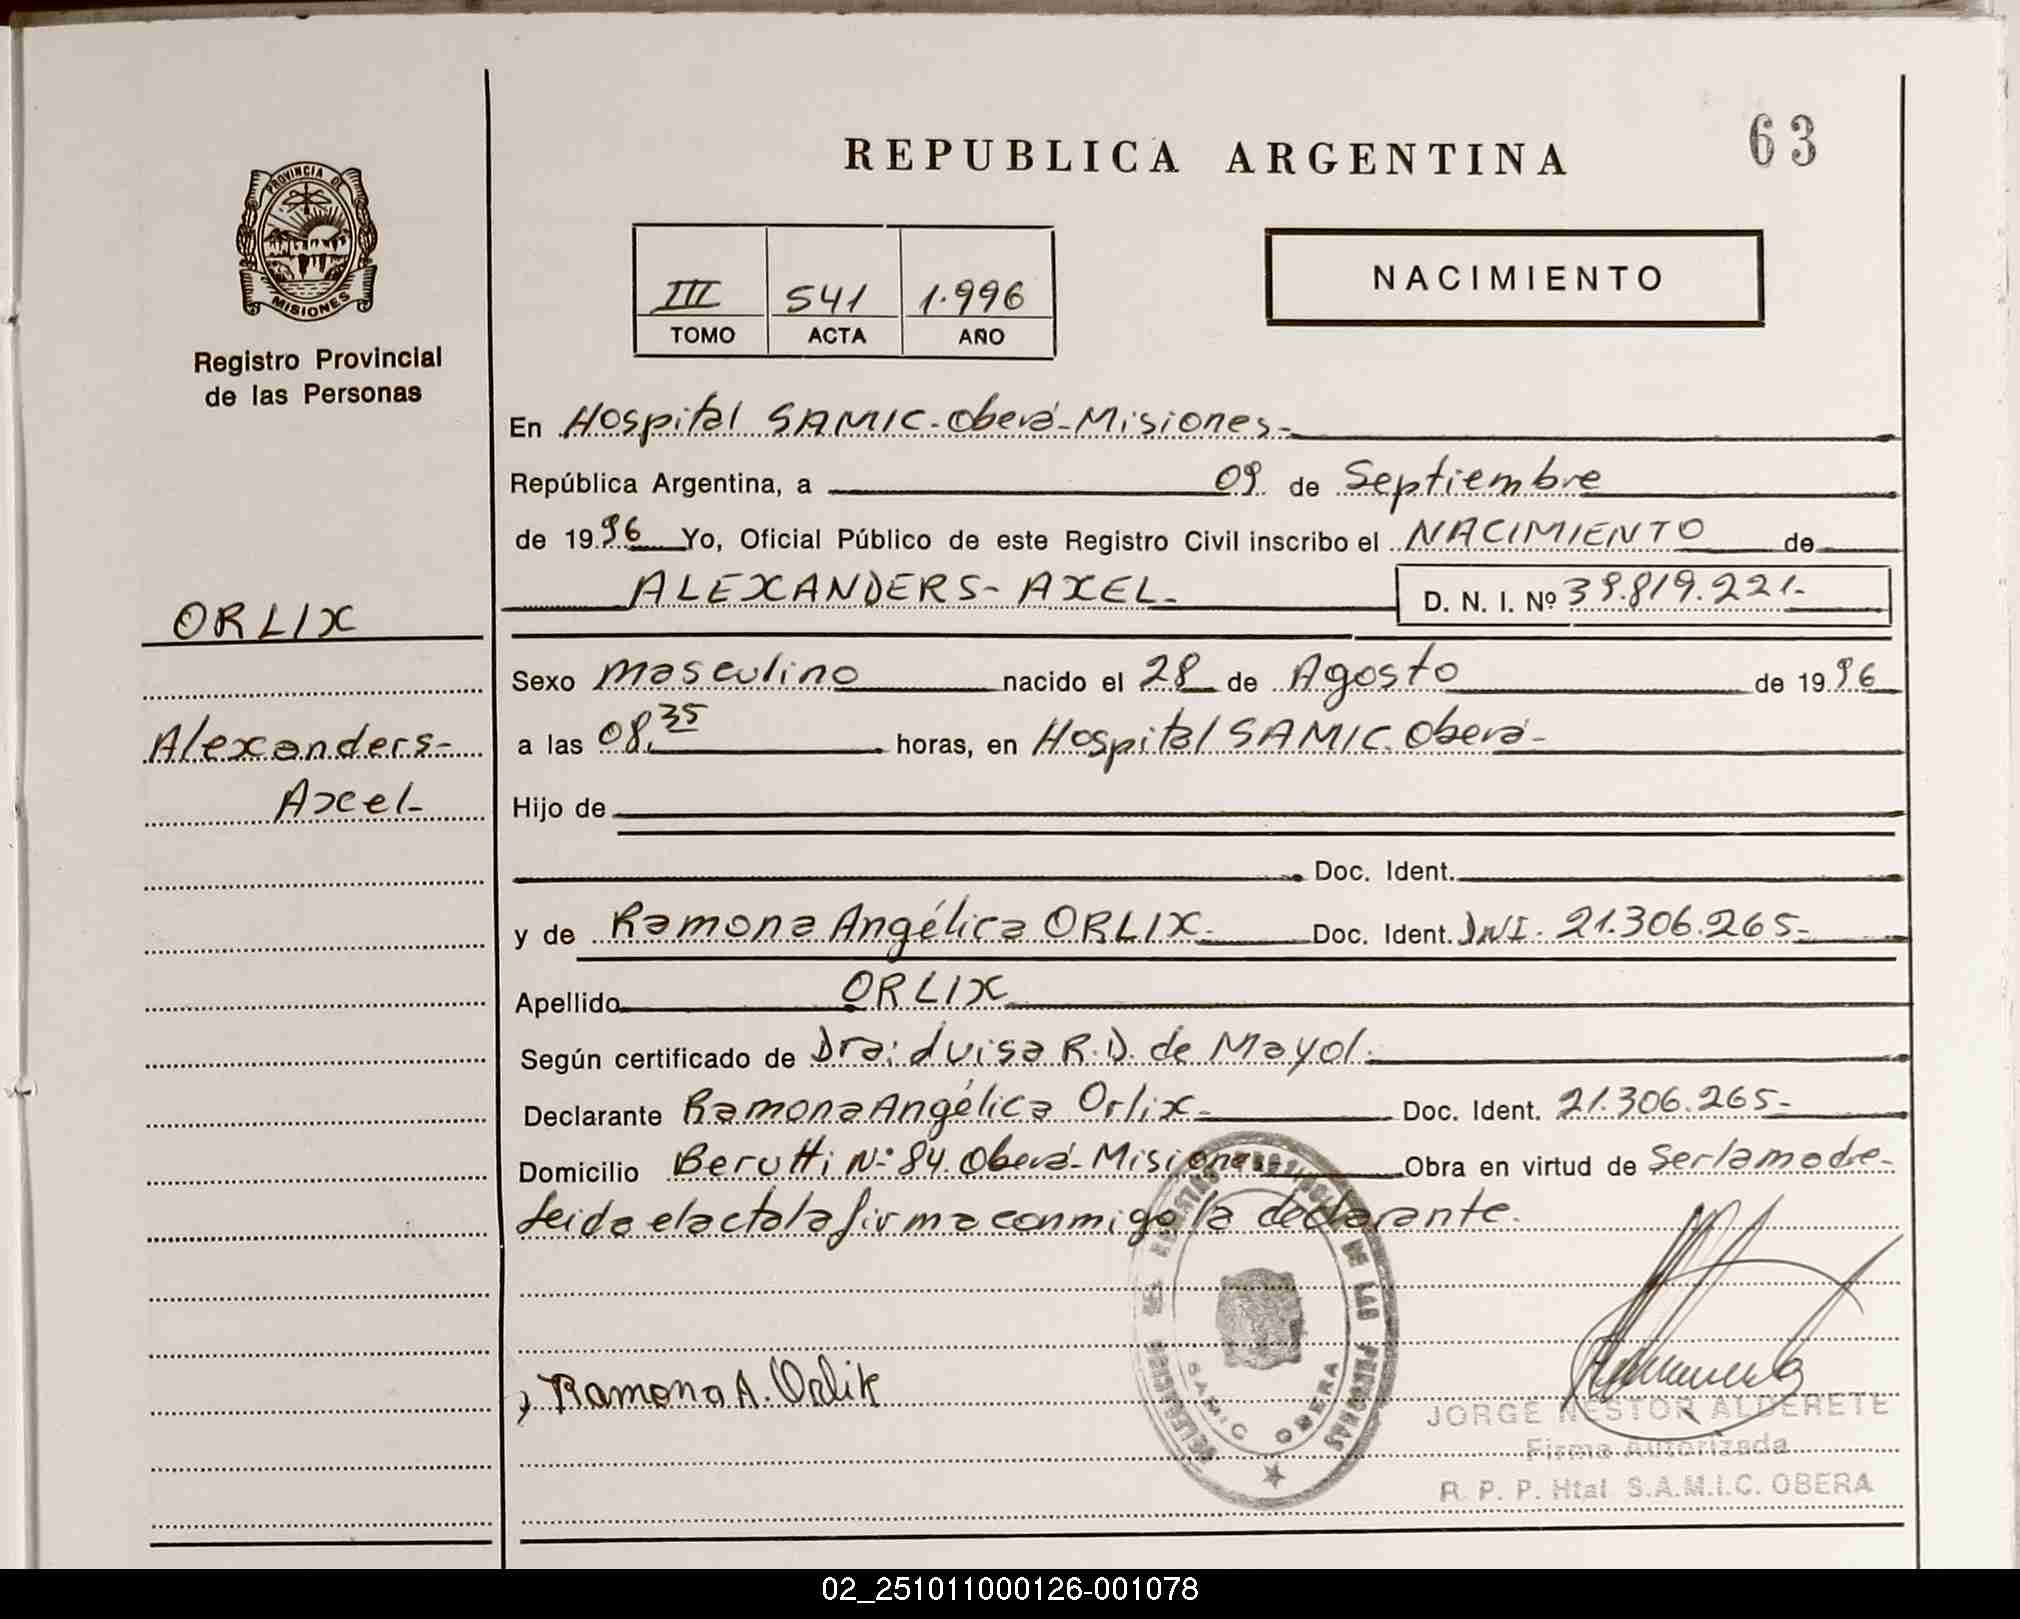 63
REPUBLICA ARGENTINA
PROVINCIA DE
MISIONES
Registro Provincial
de las Personas
III 541 1.996
TOMO ACTA AÑO
NACIMIENTO
En Hospital SAMIC-Oberá-Misiones-
República Argentina, a 09 de Septiembre
de 1996 Yo, Oficial Público de este Registro Civil inscribo el NACIMIENTO de
ALEXANDERS-AXEL- D. N. I. Nº 39.819.221-
ORLIX
Alexanders-
Axel-
Sexo masculino nacido el 28 de Agosto de 1996
a las 08.35 horas, en Hospital SAMIC. Oberá-
Hijo de
Doc. Ident.
y de Ramona Angélica ORLIX- Doc. Ident. DNI. 21.306.265-
Apellido ORLIX
Según certificado de Dra: Luisa R.D. de Mayol.
Declarante Ramona Angélica Orlix- Doc. Ident. 21.306.265-
Domicilio Berutti Nº 84. Oberá-Misiones- Obra en virtud de ser la madre-
Leida el acta la firma conmigo la declarante.
Ramona A. Orlik
DE LAS PERSONAS
SAMIC OBERA
JORGE NESTOR ALDERETE
Firma Autorizada
R. P. P. Htal S.A.M.I.C. OBERA
02_251011000126-001078